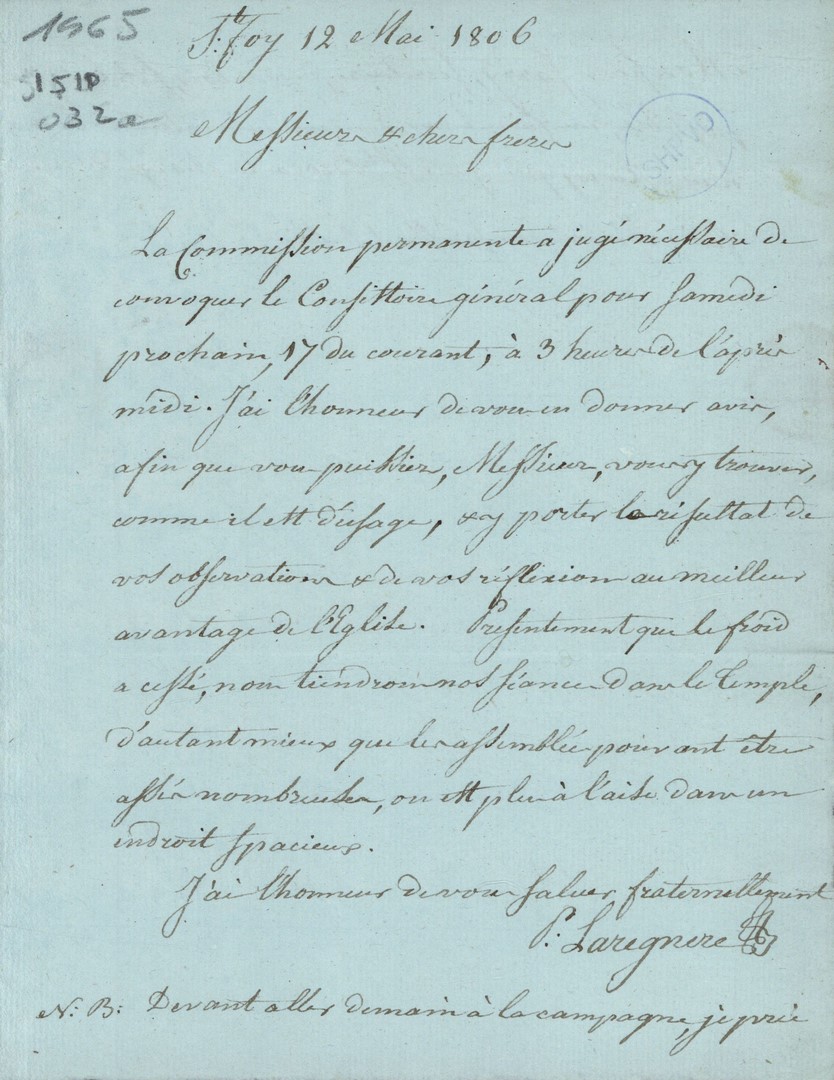 1965
151P
032a
SHPVD
St. foy 12 Mai 1806
Messieurs & chers freres
La Commission permanente a jugé nécessaire de
convoquer le Consistoire général pour Samedi
prochain, 17 du courant, à 3 heures de l'après
midi. J'ai l'honneur de vous en donner avis,
afin que vous puissiez, Messieurs, vous y trouver,
comme il est d'usage, & y porter le résultat de
vos observations & de vos réflexions au meilleur
avantage de l'Eglise. Présentement que le froid
a cessé, nous tiendrons nos séances dans le Temple,
d'autant mieux que les assemblées pouvant être
assés nombreuses, on est plus à l'aise dans un
endroit spacieux.
J'ai l'honneur de vous saluer fraternellement
P: Laregnere
N: B: Devant aller demain à la campagne, je prie